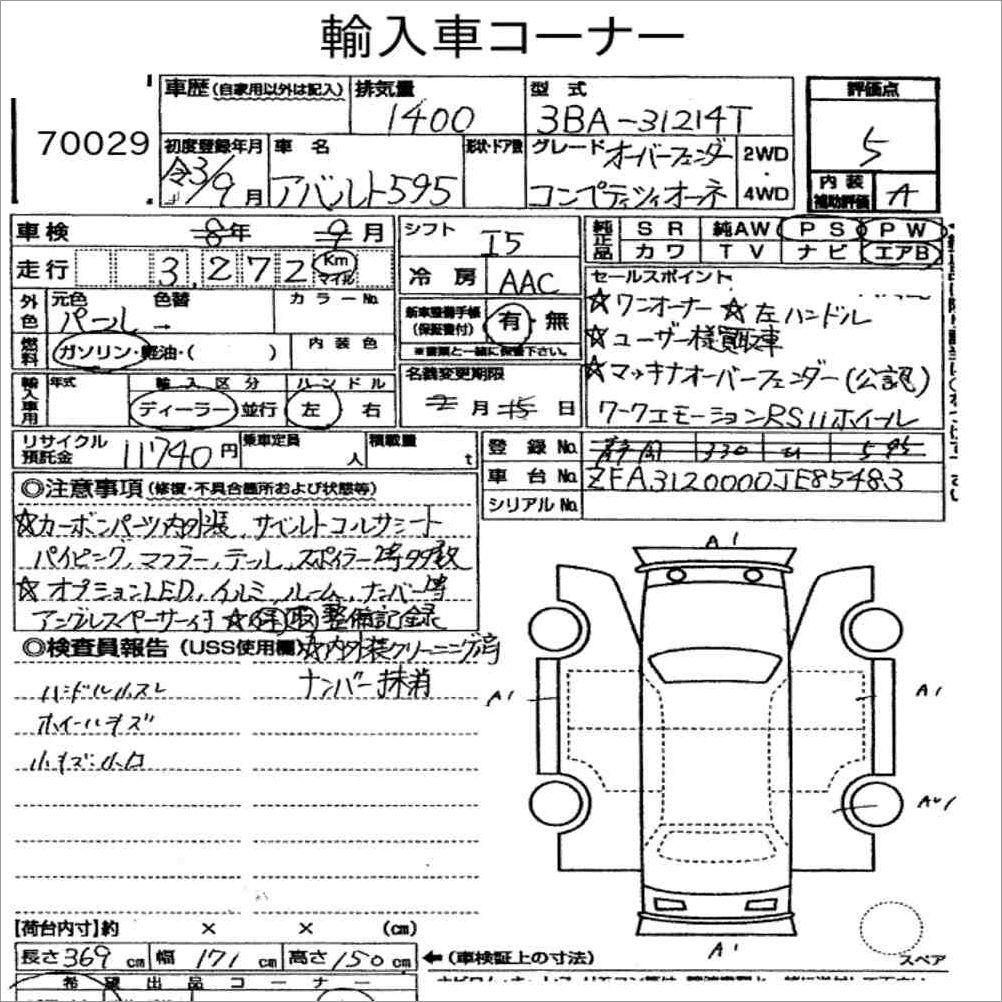 輸入車コーナー
70029
車歴(自家用以外は記入) 排気量 1400 型式 3BA-31214T 評価点 5
初度登録年月 令3/9月 車名 アバルト595 形状・ドア数 グレード オーバーフェンダー コンペティツィオーネ 2WD 4WD
内装補助評価 A
車検 8年 9月
走行 3,272 Km マイル
外色 元色 パール 色替 → カラーNo.
燃料 ガソリン・軽油・( ) 内装色
輸入車用 年式 輸入区分 ディーラー 並行 ハンドル 左 右
シフト I5
冷房 AAC
新車整備手帳(保証書付) 有・無
※書類と一緒に保管下さい。
名義変更期限 月 15 日
純正品 SR 純AW PS PW
カワ TV ナビ エアB
セールスポイント
☆ワンオーナー ☆左ハンドル
☆ユーザー様買取車
☆マッキナオーバーフェンダー(公認)
ワークエモーションRS11ホイール
リサイクル預託金 11740円 乗車定員 人 積載量 t
登録No. 330 595
車台No. ZFA3120000JE85483
シリアルNo.
◎注意事項(修復・不具合箇所および状態等)
☆カーボンパーツ内外装、サベルトコルサシート
パイピング、マフラー、テール、スポイラー等多数
☆オプションLED、イルミ、ルーム、ナンバー等
アングレスペーサー付 ☆保取整備記録
◎検査員報告(USS使用欄) ☆内外装クリーニング済
ナンバー抹消
ハンドル小スレ
ホイールキズ
小キズ・小凹
A1
A1
A1
A1
【荷台内寸】約 × × (cm)
長さ369cm 幅171cm 高さ150cm ←(車検証上の寸法) スペア
希望出品コーナー